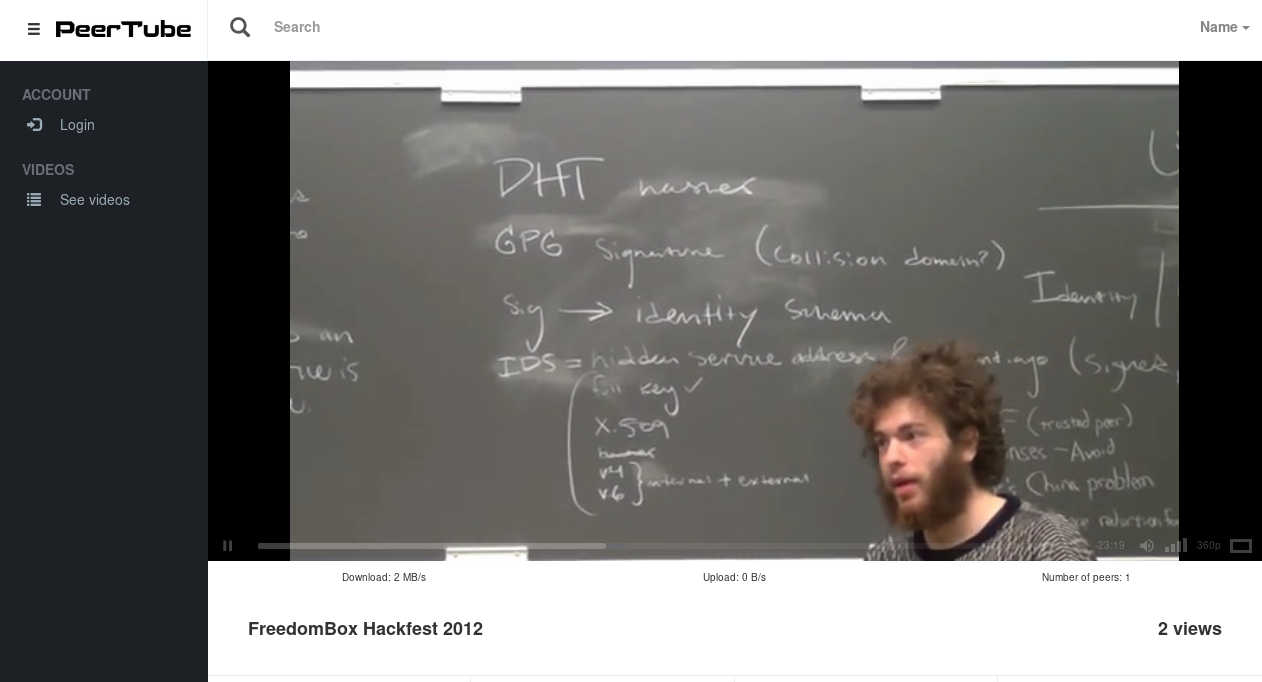 PeerTube
Search
Name
ACCOUNT
Login
VIDEOS
See videos
DHT names
GPG Signature (collision domain?)
Sig → identity schema
IDS = hidden service address
full key ✓
X.509
v4
v6 } internal + external
Identity
(signed,
(trusted peer)
Avoid
China problem
an
is
-23:19
360p
Download: 2 MB/s
Upload: 0 B/s
Number of peers: 1
FreedomBox Hackfest 2012
2 views